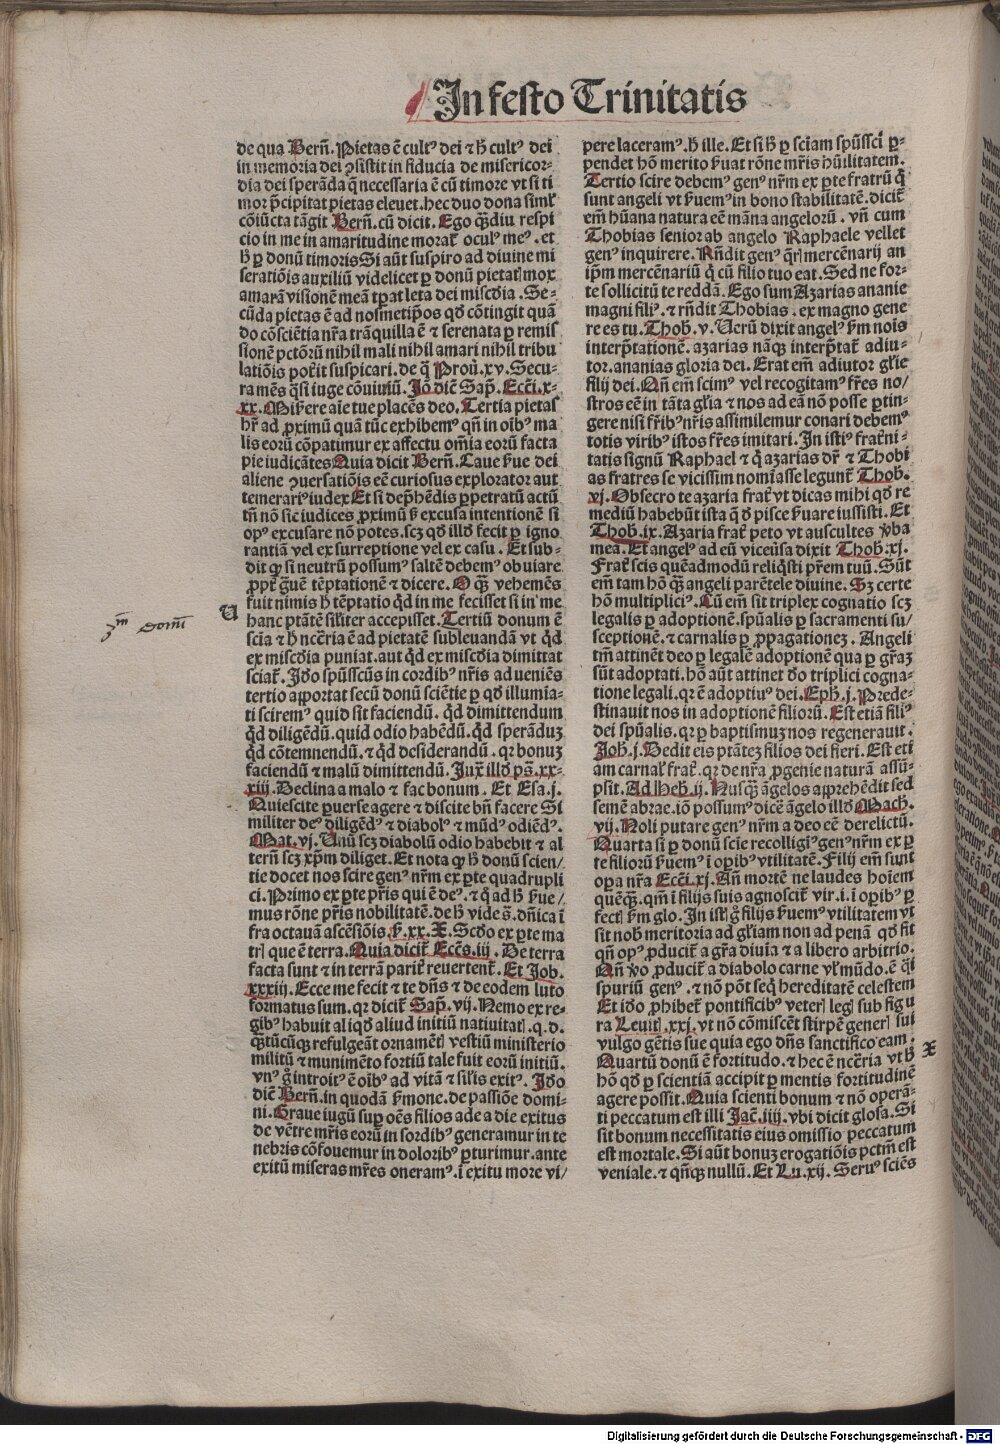 In festo Trinitatis
de qua Bern̄. Pietas ē cultꝰ dei ⁊ h̄ cultꝰ dei
in memoria dei ꝯsistit in fiducia de misericor-
dia dei sperāda q̄ necessaria ē cū timore vt si ti
mor p̄cipitat pietas eleuet. hec duo dona siml̕
cōiūcta tāgit Bern̄. cū dicit. Ego q̄ꝫdiu respi
cio in me in amaritudine morat̕ oculꝰ meꝰ. et
h̄ ꝑ donū timoris Si aūt suspiro ad diuine mi
serationis auxiliū videlicet ꝑ donū pietatꝭ mox
amarā visionē meā tꝑat leta dei miscd̕ia. Se-
cūda pietas ē ad nosmetip̄os qd̕ cōtingit quā
do cōsciētia nr̄a trāquilla ē ⁊ serenata ꝑ remis
sionē pctōrū nihil mali nihil amari nihil tribu
lationis pot̕it suspicari. de q̄ Prou̕. xv. Secu-
ra mēs q̄si iuge cōuiuiū. Jō diē Sap̄. Eccī. x-
xx. Miẜere aīe tue placēs deo. Tertia pietas
hr̄ ad ꝓximū quā tūc exhibemꝰ qn̄ in oībꝰ ma
lis eorū cōpatimur ex affectu om̄ia eorū facta
pie iudicātes Quia dicit Bern̄. Caue ẜue dei
aliene ꝯuersatiōis eē curiosus explorator aut
temerariꝰ iudex Et si dep̄hēdis ꝑpetratū actū
tn̄ nō sic iudices ꝓximū ẜ excusa intentionē si
opꝰ excusare nō potes. scꝫ qd̕ illd̕ fecit ꝑ igno
rantiā vel ex surreptione vel ex casu. Et sub-
dit ꝙ si neutrū possumꝰ saltē debemꝰ obuiare
ꝓpt̕ grauē tēptationē ⁊ dicere. O q̄ꝫ vehemēs
fuit nimis h̄ tēptatio qd̕ in me fecisset si in me
hanc ptātē sil̕iter accepisset. Tertiū donum ē
scia ⁊ h̄ ncc̄ria ē ad pietatē subleuandā vt qd̕
ex miscd̕ia puniat. aut qd̕ ex miscd̕ia dimittat
sciat̕. Jdo spūsscūs in cordibꝰ nr̄is adueniēs
tertio apportat secū donū sciētie ꝑ qd̕ illumia-
ti sciremꝰ quid sit faciendū. qd̕ dimittendum
qd̕ diligēdū. quid odio habēdū. qd̕ sperāduꝫ
qd̕ cōtemnendū. ⁊ qd̕ desiderandū. qr bonuꝫ
faciendū ⁊ malū dimittendū. Jux̕ illd̕ ps̄. xx-
xiij. Declina a malo ⁊ fac bonum. Et Esa. j.
Quiescite ꝑuerse agere ⁊ discite bn̄ facere Si
militer deꝰ diligēdꝰ ⁊ diabolꝰ ⁊ mūdꝰ odiēdꝰ.
Mat. vj. Unū scꝫ diabolū odio habebit ⁊ al
terū scꝫ xp̄m diliget. Et nota ꝙ h̄ donū scien/
tie docet nos scire genꝰ nr̄m ex ꝑte quadrupli
ci. Primo ex ꝑte pr̄is qui ē deꝰ. ⁊ q̕ ad h̄ ẜue/
mus rōne pr̄is nobilitatē. de h̄ vide s̄. dn̄ica ī
fra octauā ascēsiōis ẜ. xx. X. Scd̕o ex ꝑte ma
trꝭ que ē terra. Quia dicit̕ Eccs̄. iij. De terra
facta sunt ⁊ in terrā parit̕ reuertent̕. Et Job.
xxxiij. Ecce me fecit ⁊ te dn̄s ⁊ de eodem luto
formatus sum. qr dicit̕ Sap̄. vij. Nemo ex re-
gibꝰ habuit aliqd̕ aliud initiū natiuitatꝭ. q. d.
q̄ꝫtūcūqꝫ refulgeāt ornamētꝭ vestiū ministerio
militū ⁊ munimēto fortiū tale fuit eorū initiū.
vnꝰ g̊ introitꝰ ē oībꝰ ad vitā ⁊ sil̕is exitꝰ. Jdo
diē Bern̄. in quodā ẜmone. de passiōe domi-
ni. Graue iugū suꝑ oēs filios ade a die exitus
de vētre mr̄is eorū in sordibꝰ generamur in te
nebris cōfouemur in doloribꝰ ꝑturimur. ante
exitū miseras mr̄es oneramꝰ. ī exitu more vi/
U
3m donū
pere laceramꝰ. h̄ ille. Et si h̄ ꝑ sciam spūssci ꝑ-
pendet hō merito ẜuat rōne mr̄is hūilitatem.
Tertio scire debemꝰ genꝰ nr̄m ex ꝑte fratrū q̕
sunt angeli vt ẜuemꝰ in bono stabilitatē. dicit̕
em̄ hūana natura eē māna angelorū. vn̄ cum
Thobias senior ab angelo Raphaele vellet
genꝰ inquirere. Rn̄dit genꝰ qr̄ꝭ mercēnarij an
ip̄m mercēnariū q̕ cū filio tuo eat. Sed ne for-
te sollicitū te reddā. Ego sum Azarias ananie
magni filiꝰ. ⁊ rn̄dit Thobias. ex magno gene
re es tu. Thob̕. v. Uerū dixit angelꝰ ẜm nois
interp̄tationē. azarias nāqꝫ interp̄tat̕ adiu-
tor. ananias gloria dei. Erat em̄ adiutor gl̕ie
filij dei. Nn̄ em̄ scimꝰ vel recogitamꝰ fr̄es no/
stros eē in tāta gl̕ia ⁊ nos ad eā nō posse ꝑtin-
gere nisi fr̄ibꝰ nr̄is assimilemur conari debemꝰ
totis viribꝰ istos fr̄es imitari. In istiꝰ frat̕ni-
tatis signū Raphael ⁊ q̕ azarias dr̄ ⁊ Thobi
as fratres se vicissim nomiasse legunt̕ Thob̕.
vj. Obsecro te azaria frat̕ vt dicas mihi qd̕ re
mediū habebūt ista q̄ d̕ pisce ẜuare iussisti. Et
Thob̕. ix. Azaria frat̕ peto vt auscultes v̕ba
mea. Et angelꝰ ad eū viceūsa dixit Thob̕. xj.
Frat̕ scis quēadmodū reliq̄sti pr̄em tuū. Sūt
em̄ tam hō q̄ꝫ angeli parētele diuine. Sꝫ certe
hō multipliciꝰ. Cū em̄ sit triplex cognatio scꝫ
legalis ꝑ adoptionē. spūalis ꝑ sacramenti su/
sceptionē. ⁊ carnalis ꝑ ꝓpagationeꝫ. Angeli
tm̄ attinēt deo ꝑ legalē adoptionē qua ꝑ gr̄aꝫ
sūt adoptati. hō aūt attinet do triplici cogna-
tione legali. qr ē adoptiuꝰ dei. Eph̕. j. Prede-
stinauit nos in adoptionē filiorū. Est etiā filiꝰ
dei spūalis. qr ꝑ baptismuꝫ nos regenerauit.
Joh̕. j. Dedit eis ptāteꝫ filios dei fieri. Est eti
am carnal̕ frat̕. qr de nr̄a ꝓgenie naturā assū-
psit. Ad Heb̕. ij. Nusq̄ꝫ āgelos apprehēdit sed
semē abrae. iō possumꝰ dicē āgelo illd̕ Mach̕.
vij. Noli putare genꝰ nr̄m a deo eē derelictū.
Quarta si ꝑ donū scie recolligiꝰ genꝰ nr̄m ex ꝑ
te filiorū ẜuemꝰ ī oꝑibꝰ vtilitatē. Filij em̄ sunt
oꝑa nr̄a Eccī. xj. An̄ mortē ne laudes hoiem
quēqꝫ. qm̄ ī filijs suis agnoscit̕ vir. i. ī oꝑibꝰ ꝑ
fectꝭ ẜm glo. In istꝭ g̊ filijs ẜuemꝰ vtilitatem vt
sit nob̕ meritoria ad gl̕iam non ad penā qd̕ fit
qn̄ opꝰ ꝓducit̕ a gr̄a diuīa ⁊ a libero arbitrio.
Qn̄ v̕o ꝓducit̕ a diabolo carne vl̕ mūdo. ē q̄si
spuriū genꝰ. ⁊ nō pōt seq̕ hereditatē celestem
Et ido ꝓhibet̕ pontificibꝰ veterꝭ legꝭ sub figu
ra Leuitꝭ. xxj. vt nō cōmiscēt stirpē generꝭ sui
vulgo gētis sue quia ego dn̄s sanctifico eam.
Quartū donū ē fortitudo. ⁊ hec ē ncc̄ria vt h̕
hō qd̕ ꝑ scientiā accipit ꝑ mentis fortitudinē
agere possit. Quia scienti bonum ⁊ nō operā-
ti peccatum est illi Jac̄. iiij. vbi dicit glosa. Si
sit bonum necessitatis eius omissio peccatum
est mortale. Si aūt bonuꝫ erogatiōis pctm̄ est
veniale. ⁊ qn̄qꝫ nullū. Et Lu. xij. Seruꝰ sciēs
X
Digitalisierung gefördert durch die Deutsche Forschungsgemeinschaft - DFG